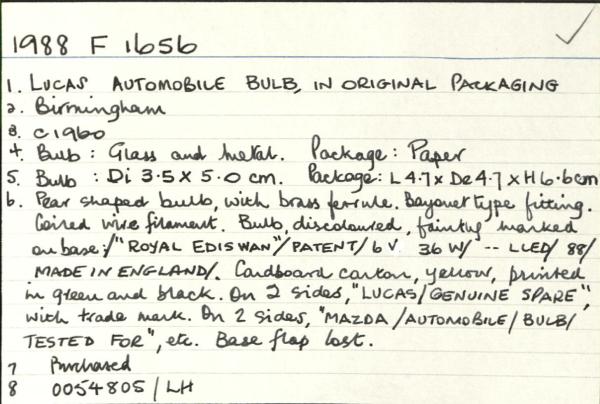 1988 F 1656
1. LUCAS AUTOMOBILE BULB, IN ORIGINAL PACKAGING
2. Birmingham
3. c1960
4. Bulb : Glass and metal. Package : Paper
5 Bulb : Di 3.5 x 5.0 cm. Package : L 4.7 x De 4.7 x H 6.6cm
6. Pear shaped bulb, with brass ferrule. Bayonet type fitting.
Coired wire filament. Bulb, discoloured, faintly marked
on base :/"ROYAL EDISWAN"/PATENT/6 V. 36 W/ -- LLED/ 88/
MADE IN ENGLAND/. Cardboard carton, yellow, printed
in green and black. On 2 sides, "LUCAS/GENUINE SPARE",
with trade mark. On 2 sides, "MAZDA/AUTOMOBILE/BULB/
TESTED FOR", etc. Base flap lost.
7 Purchased
8 0054805/LH